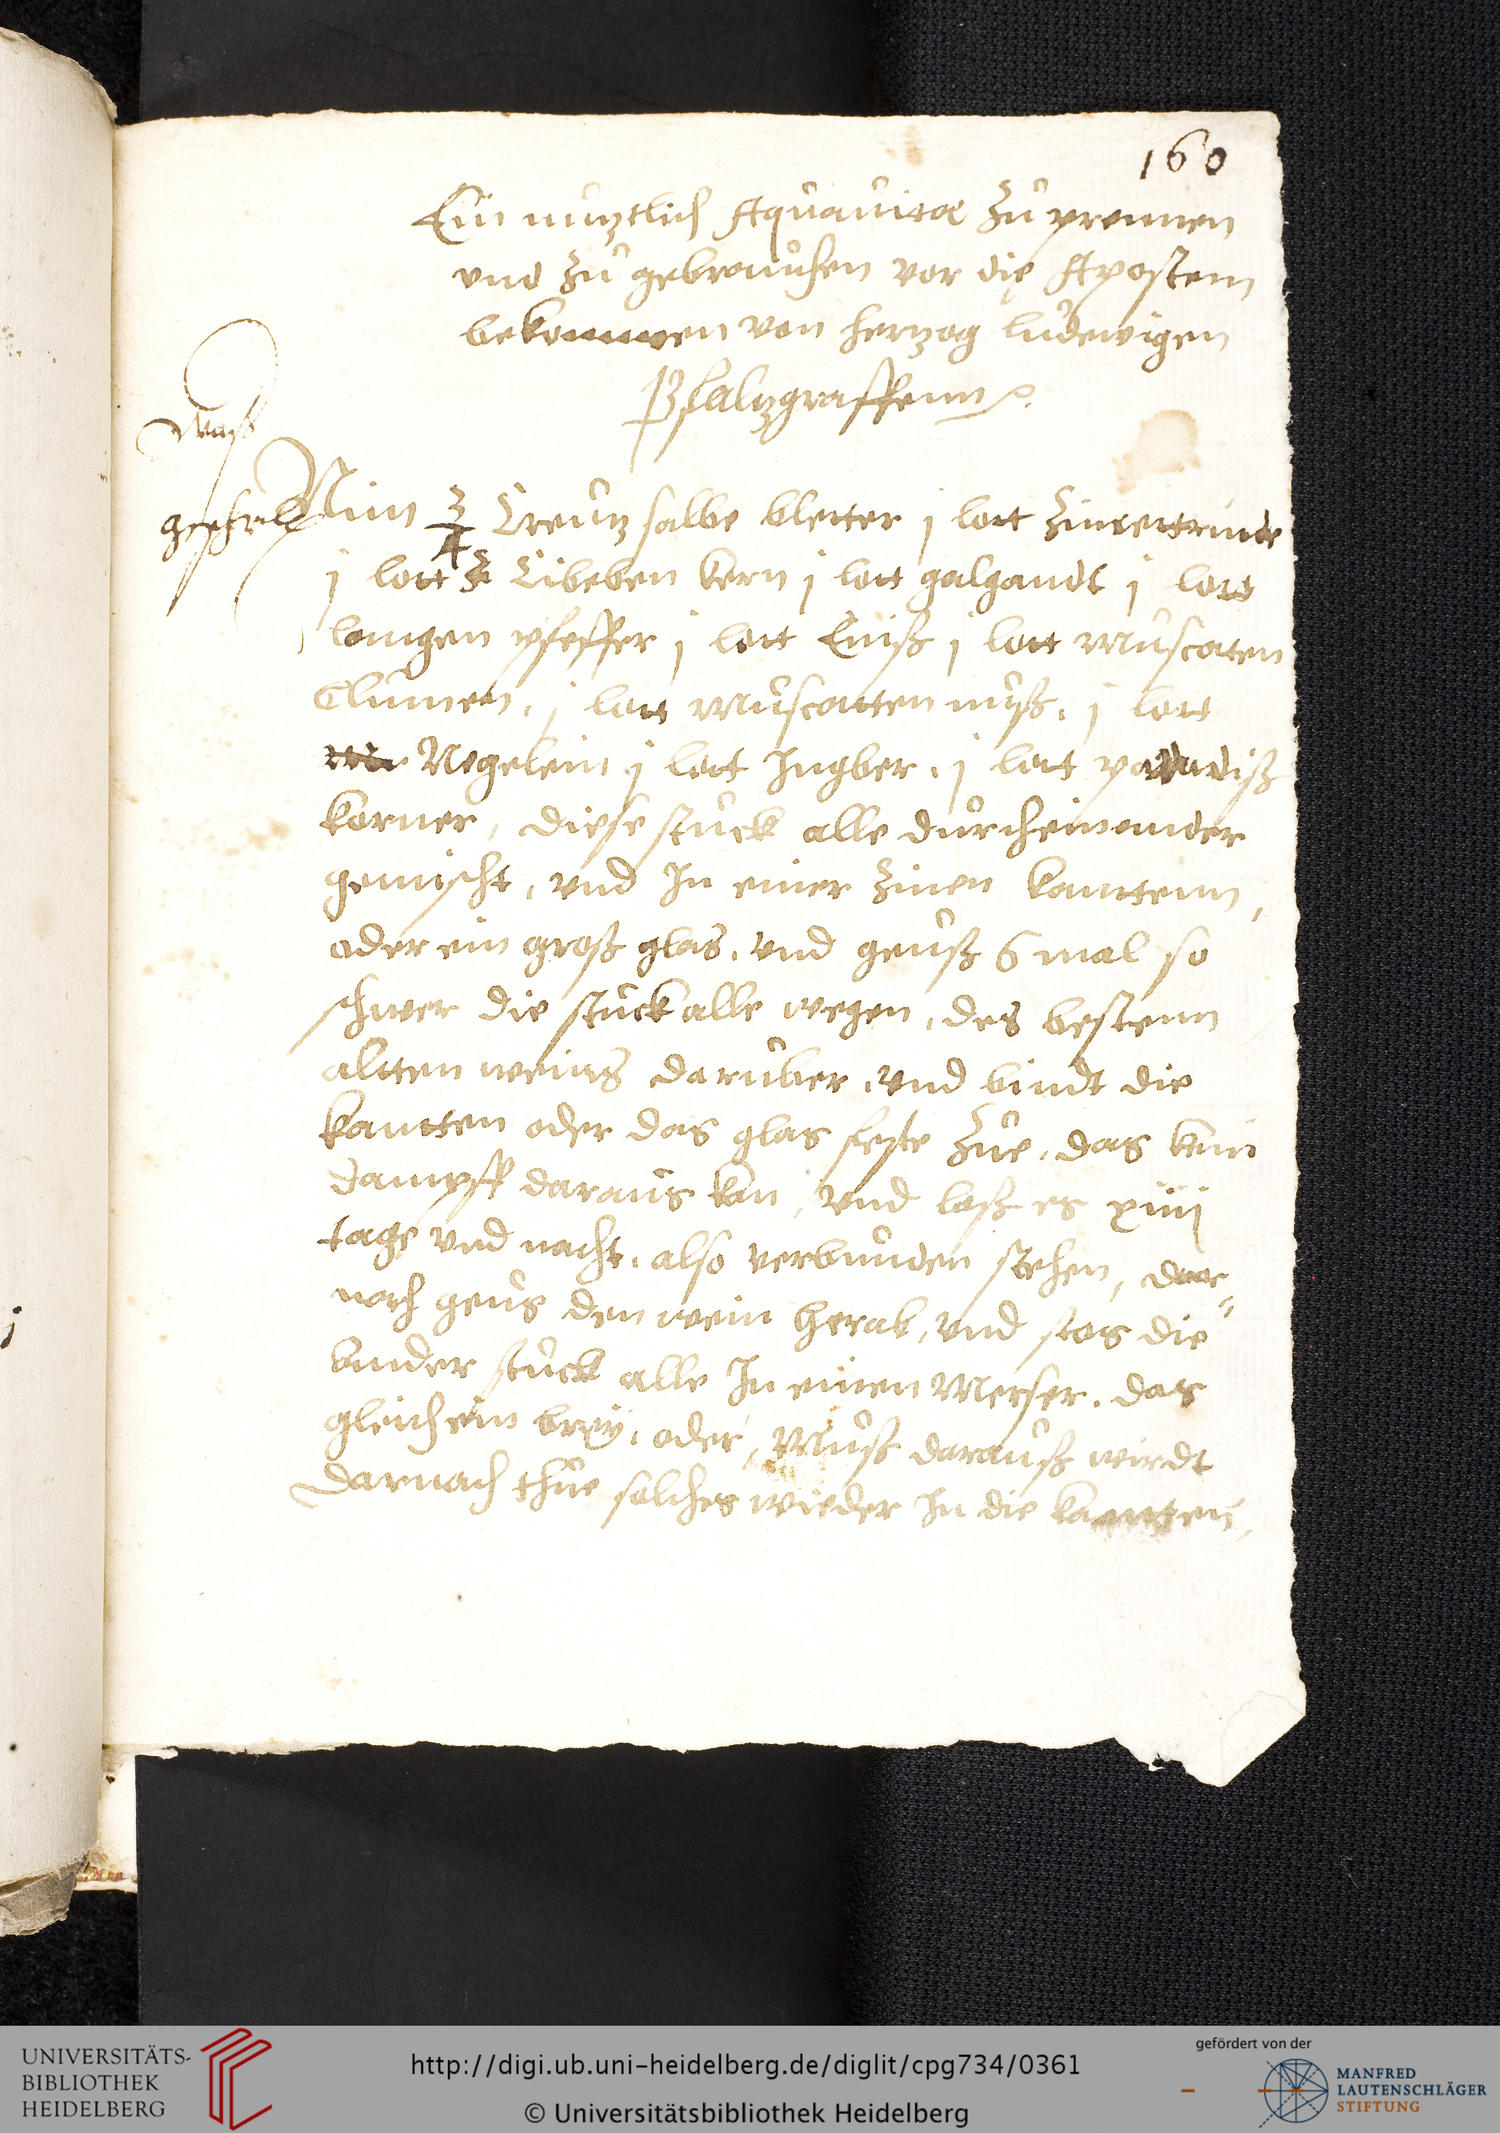 160
Ein nutzlich Aquauitæ Zu prennen
vnd Zu gebrauchen vor die Apostem
bekommen von hertzog ludewigen
Pfaltzgraffenn
Nim 3/4 Creutz salbe bletter j lott Zimettrinde
j lott Cibeben kern j lott galgandt j lott
langen pfeffer j lott Eniß j lott Muscaten
Blumen, j lott Muscatten nuß, j lott
Negelein j lott Ingber, j lott paradiß
korner, diese stuck alle durcheinander
gemischt, vnd In einer Zinen kanttenn,
oder ein groß glas, vnd geuß 6 mal so
schwer die stuck alle wegen, des bestenn
altten weins daruber, vnd bindt die
kantten oder das glas feste Zue, das kein
dampff daraus kan, vnd laß es xiiij
tage vnd nacht, also verbunden stehen, dar-
nach geus den wein herab, vnd stos die
ander stuck alle In einen Merser, das
gleich ein brey, oder Muß darauß wirdt
Darnach thue solches wieder In die kantten,
UNIVERSITÄTS-
BIBLIOTHEK
HEIDELBERG
http://digi.ub.uni-heidelberg.de/diglit/cpg734/0361
© Universitätsbibliothek Heidelberg
gefördert von der
MANFRED
LAUTENSCHLÄGER
STIFTUNG